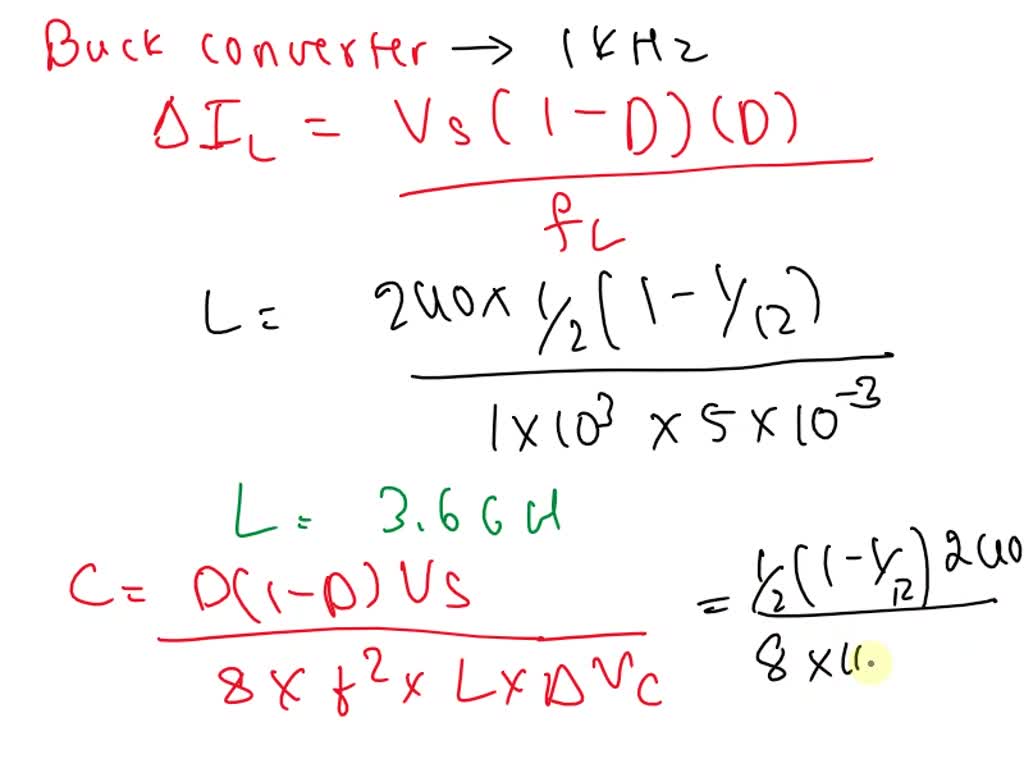 Buck converter → 1 KHz
ΔI_L = Vs(1-D)(D)
fL
L = 240 x 1/2 (1 - 1/12)
1 x 10^3 x 5 x 10^-3
L = 3.66 H
C = D(1-D) Vs
8 x f^2 x L x ΔV_C
= 1/2 (1 - 1/12) 240
8 x